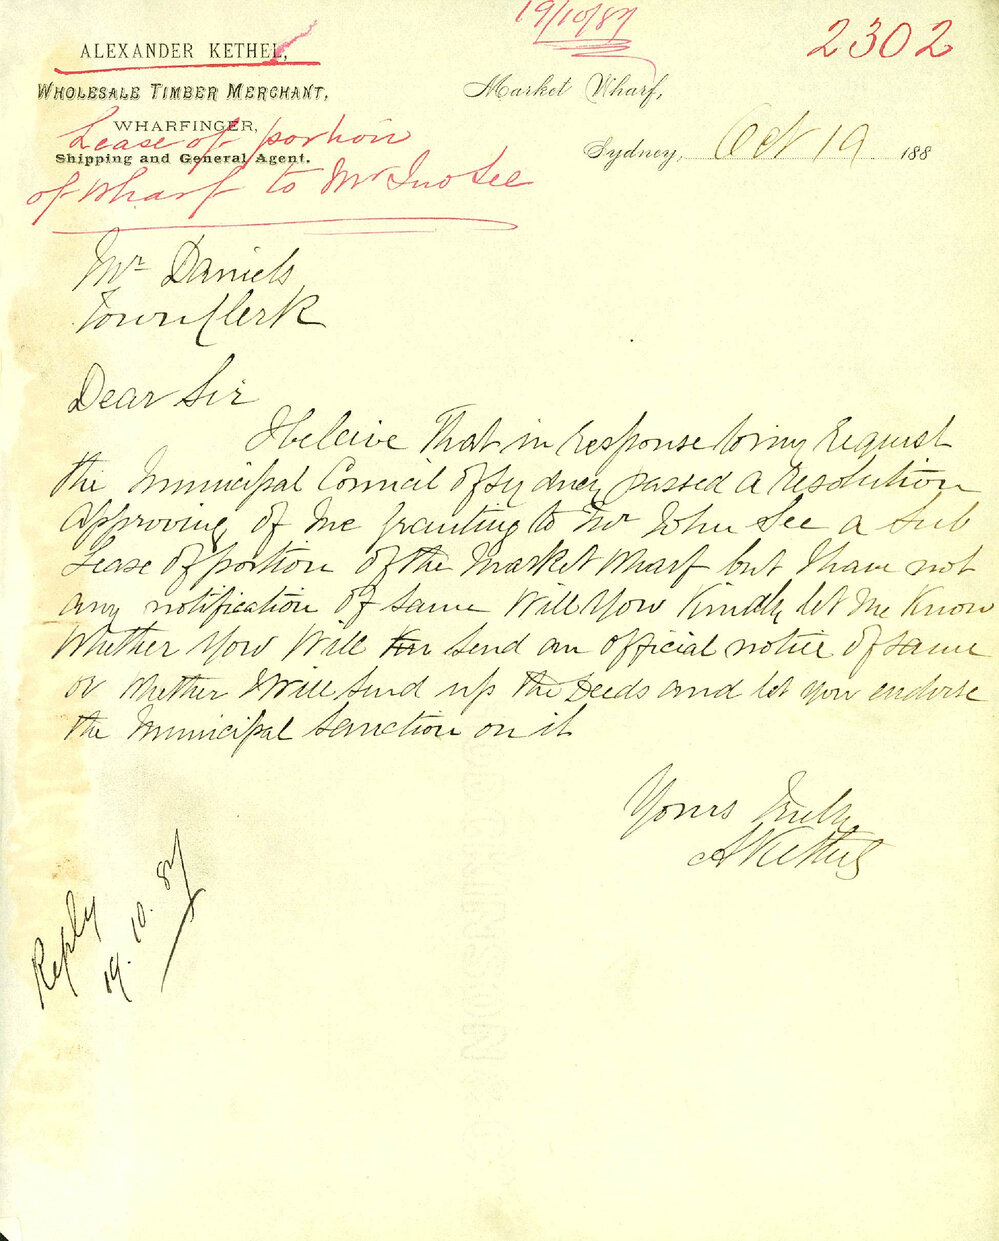 19/10/87
2302
ALEXANDER KETHEL,
WHOLESALE TIMBER MERCHANT,
WHARFINGER,
Shipping and General Agent.
Market Wharf,
Sydney, Oct 19 188
Lease of portion
of Wharf to Mr Jno See
Mr Daniels
Town Clerk
Dear Sir
I beleive that in response to my request
the Municipal Council of Sydney passed a resolution
approving of me granting to Mr John See a Sub
Lease of portion of the Market Wharf but I have not
any notification of same Will you Kindly let me Know
Whether you Will send an official notice of same
or whether I will send up the Deeds and let you endorse
the Municipal sanction on it
Yours truly
A Kethel
Reply
19.10.87